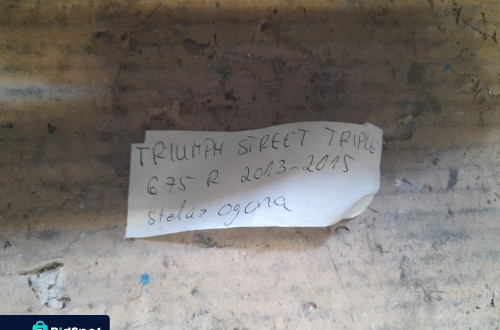 TRIUMPH STREET TRIPLE
675 R 2013-2015
Stelaż ogona
BidSpot